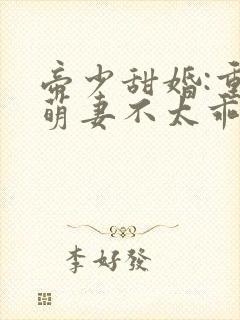 帝少甜婚:重
萌妻不太乖
李好發